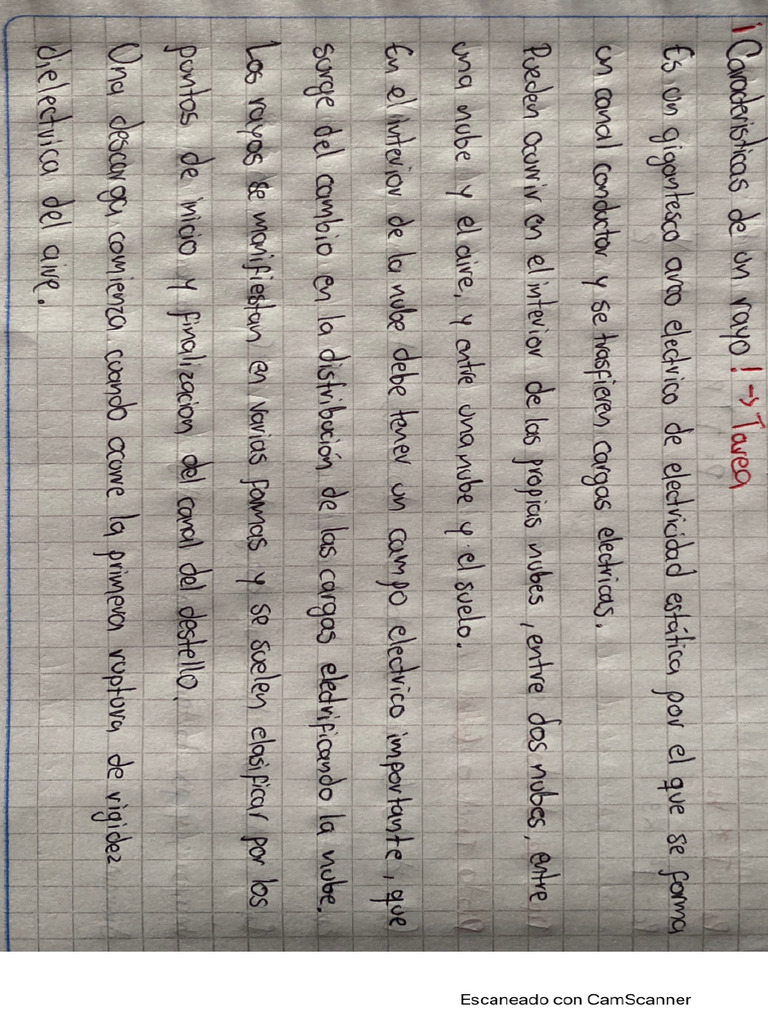 ¡Caracteristicas de un rayo! → Tarea
Es un gigantesco arco electrico de electricidad estática por el que se forma
un canal conductor y se trasfieren cargas electricas.
Pueden ocurrir en el interior de las propias nubes, entre dos nubes, entre
una nube y el aire, y entre una nube y el suelo.
En el interior de la nube debe tener un campo electrico importante, que
surge del cambio en la distribución de las cargas electrificando la nube.
Los rayos se manifiestan en varias formas y se suelen clasificar por los
puntos de inicio y finalizacion del canal del destello.
Una descarga comienza cuando ocurre la primera ruptura de rigidez
dielectrica del aire.
Escaneado con CamScanner